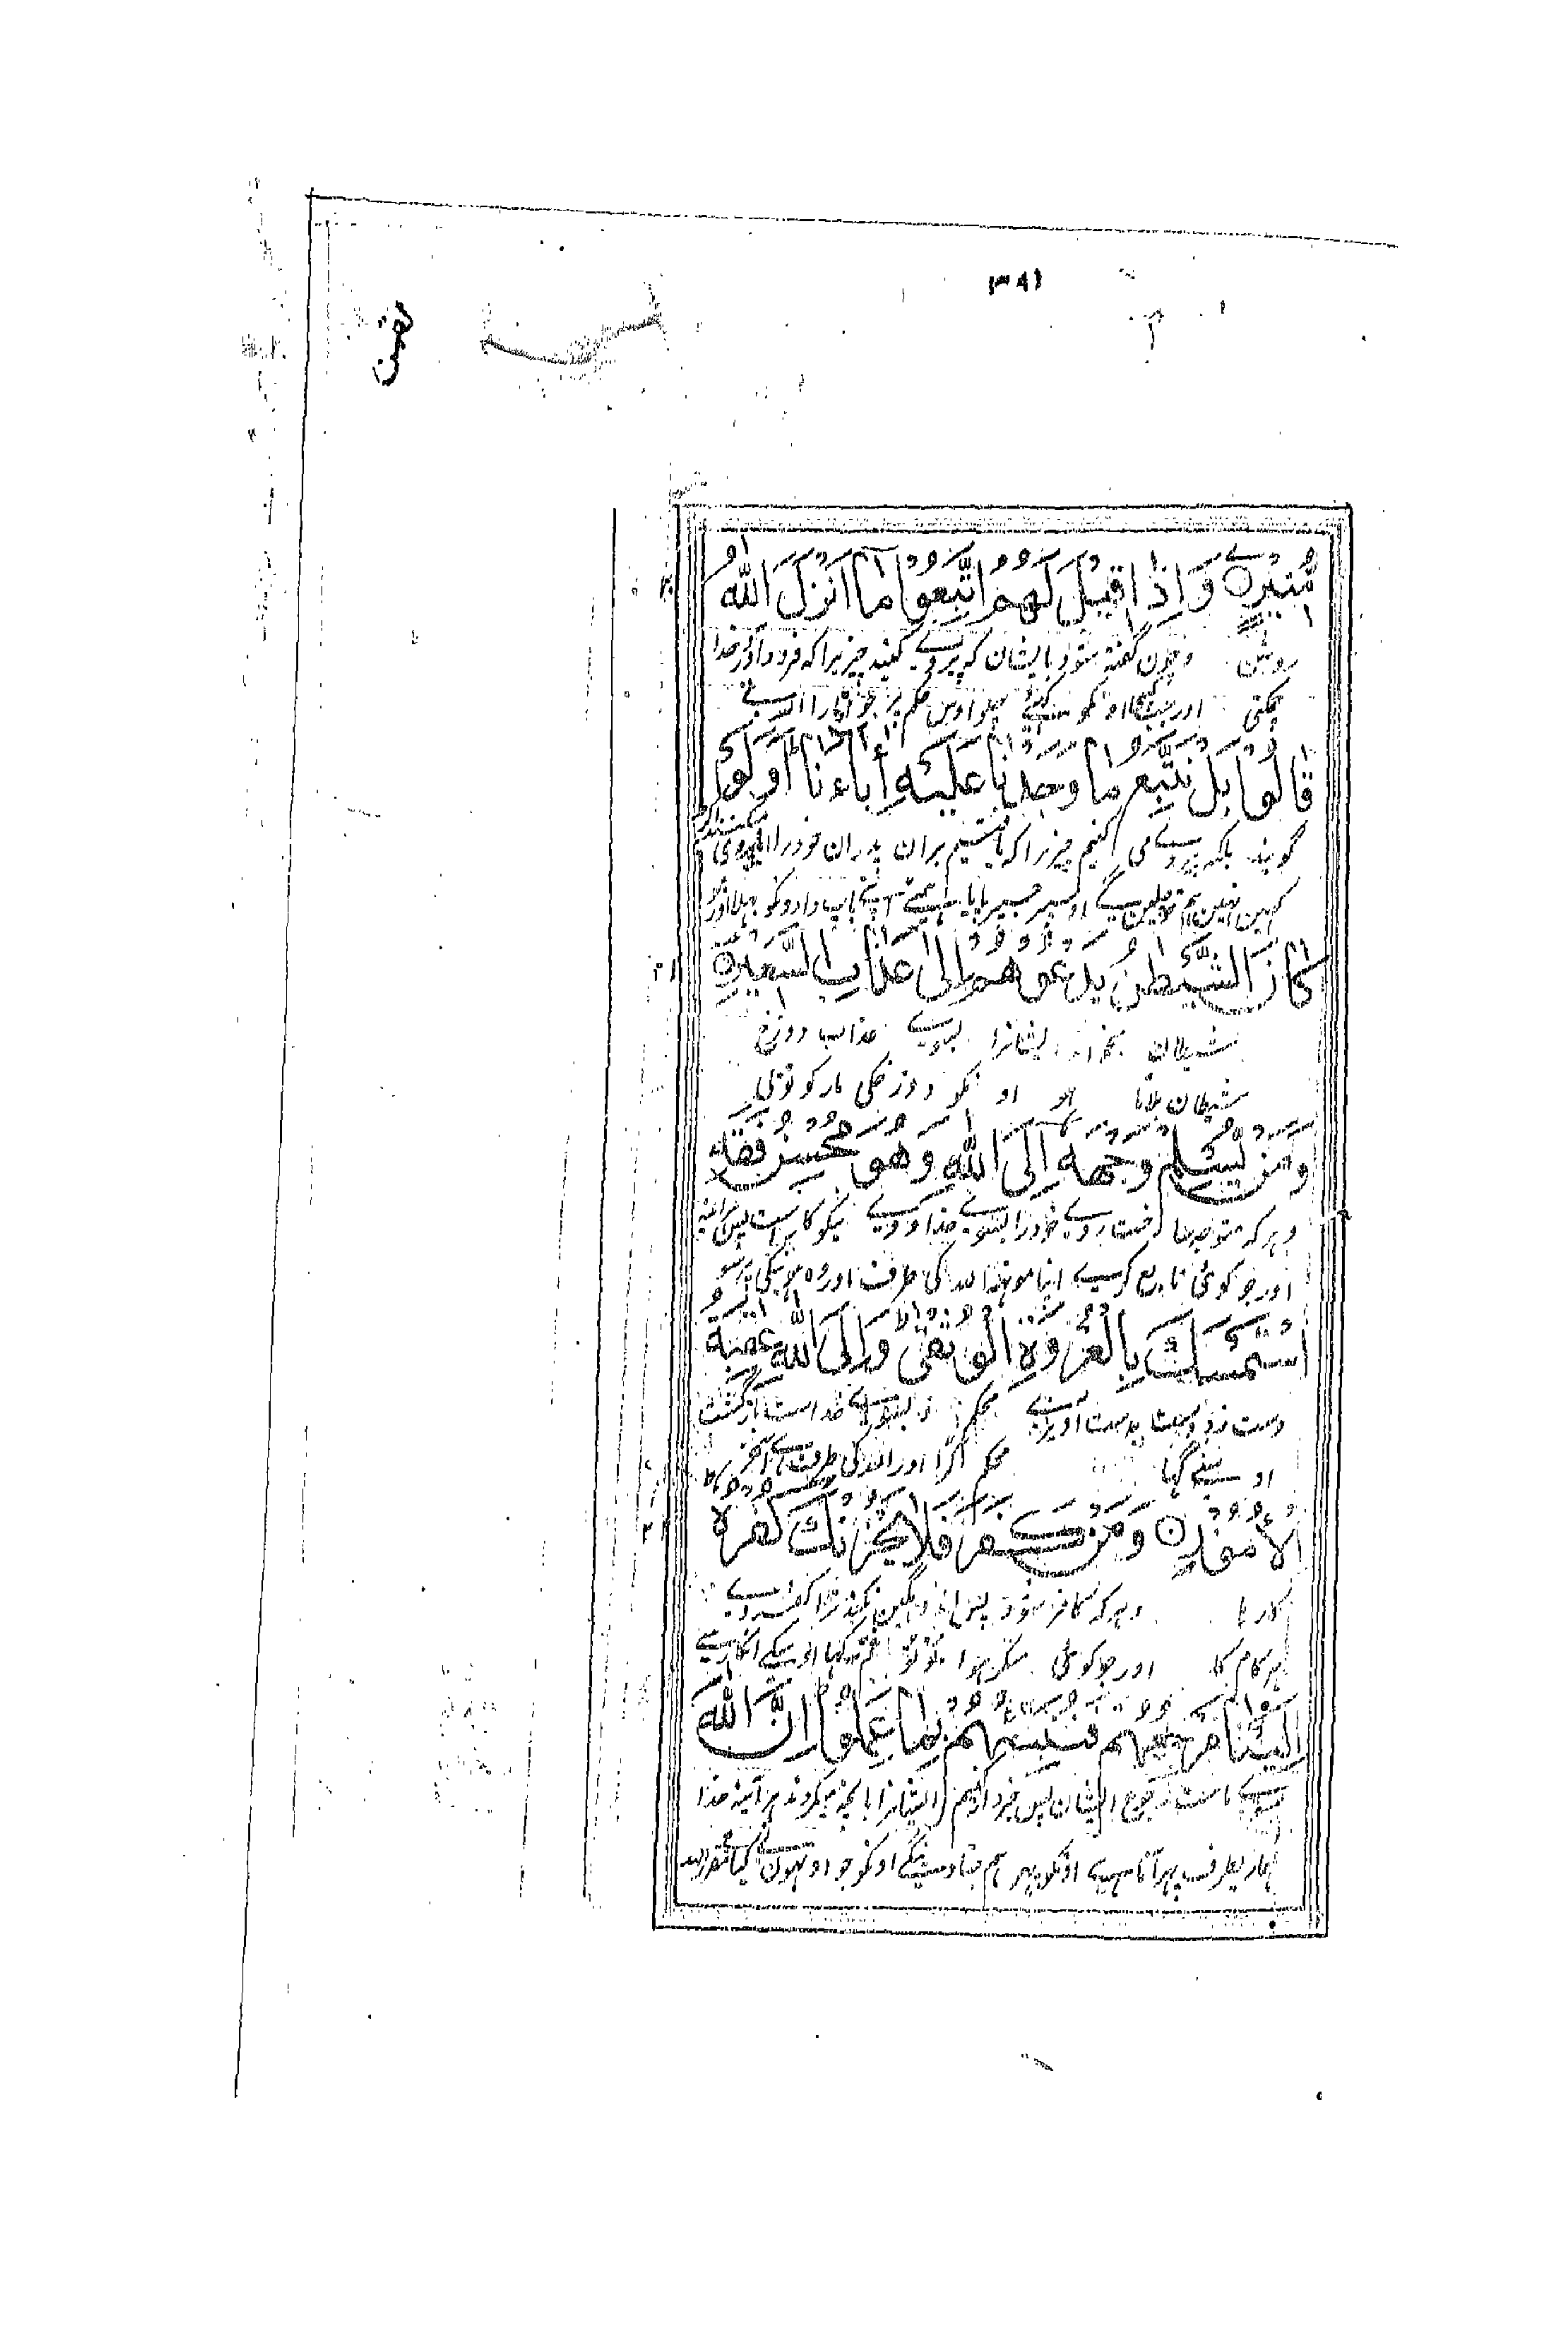 ۳۹۱
لقمن
مُّنِيْرٍ ۝ وَاِذَا قِيْلَ لَهُمُ اتَّبِعُوْا مَآ اَنْزَلَ اللّٰهُ
روشن وچون گفته شود بایشان که پیروے کنید چیزیرا که فرود آورد خدا
چمکتی اور جب چلو اوس حکم پر جو اوتارا اللہ نے
قَالُوْا بَلْ نَتَّبِعُ مَا وَجَدْنَا عَلَيْهِ اٰبَاءَنَا اَوَلَوْ
گویند بلکہ پیروے می کنیم چیزیرا کہ یافتیم بران پدران خودرا
کہین نہین ہم تو چلین گے اوسپر جسپر پایا ہمنے اپنے باپ دادونکو بھلا اور جو
كَانَ الشَّيْطٰنُ يَدْعُوْهُمْ اِلٰى عَذَابِ السَّعِيْرِ ۝
۲۱
شیطان بخواند ایشانرا بسوے عذاب دوزخ
شیطان بلاتا ہو او نکو دوزخکی مار کو تو بھی
وَمَنْ يُّسْلِمْ وَجْهَهٗ اِلَى اللّٰهِ وَهُوَ مُحْسِنٌ فَقَدِ
وہر کہ متوجہ ساخت روے خودرا بسوے خدا و وے نیکوکار است پس ہرآئینہ
اور جو کوئی تابع کرے اپنا مونہہ اللہ کی طرف اور وہ ہو نیکی پر سو
اسْتَمْسَكَ بِالْعُرْوَةِ الْوُثْقٰى وَاِلَى اللّٰهِ عَاقِبَةُ
دست زدہ است بدست آویزے محکم و بسوے خداست بازگشت
اوسنے گہا محکم کڑا اور اللہ کی طرف ہے آخر
الْاُمُوْرِ ۝ وَمَنْ كَفَرَ فَلَا يَحْزُنْكَ كُفْرُهٗ
۲۲
کارہا وہر کہ کافر شود پس اندوہگین نکند ترا کفر وے
ہر کام کا اور جو کوئی منکر ہوا تو تو غم نہ کہا اوسکے انکار سے
اِلَيْنَا مَرْجِعُهُمْ فَنُنَبِّئُهُمْ بِمَا عَمِلُوْا اِنَّ اللّٰهَ
بسوے ماست رجوع ایشان پس خبردار کنیم ایشانرا بانچہ میکردند ہرآئینہ خدا
ہماریطرف پہر آنا ہے اونکو پہر ہم جتادینگے اونکو جو اونہون نے کیا مقرر اللہ